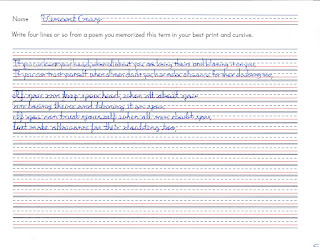 Name Vincent Gray
Write four lines or so from a poem you memorized this term in your best print and cursive.
If you can keep your head, when all about you are losing theirs and blaming it on you,
If you can trust yourself when all men doubt you, but make allowance for their doubting too,
If you can keep your head, when all about you
are losing theirs and blaming it on you,
If you can trust yourself when all men doubt you,
but make allowance for their doubting too,